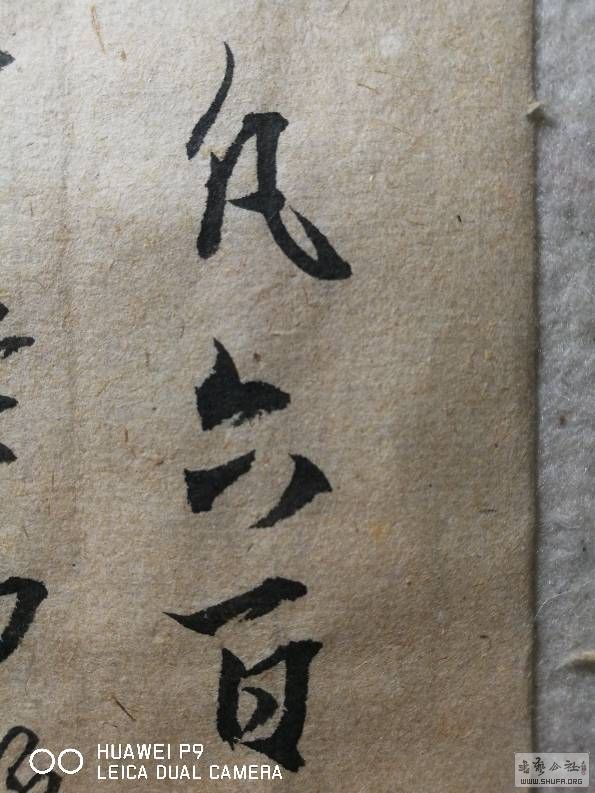 六百
HUAWEI P9
LEICA DUAL CAMERA
书藝公社
WWW.SHUFA.ORG